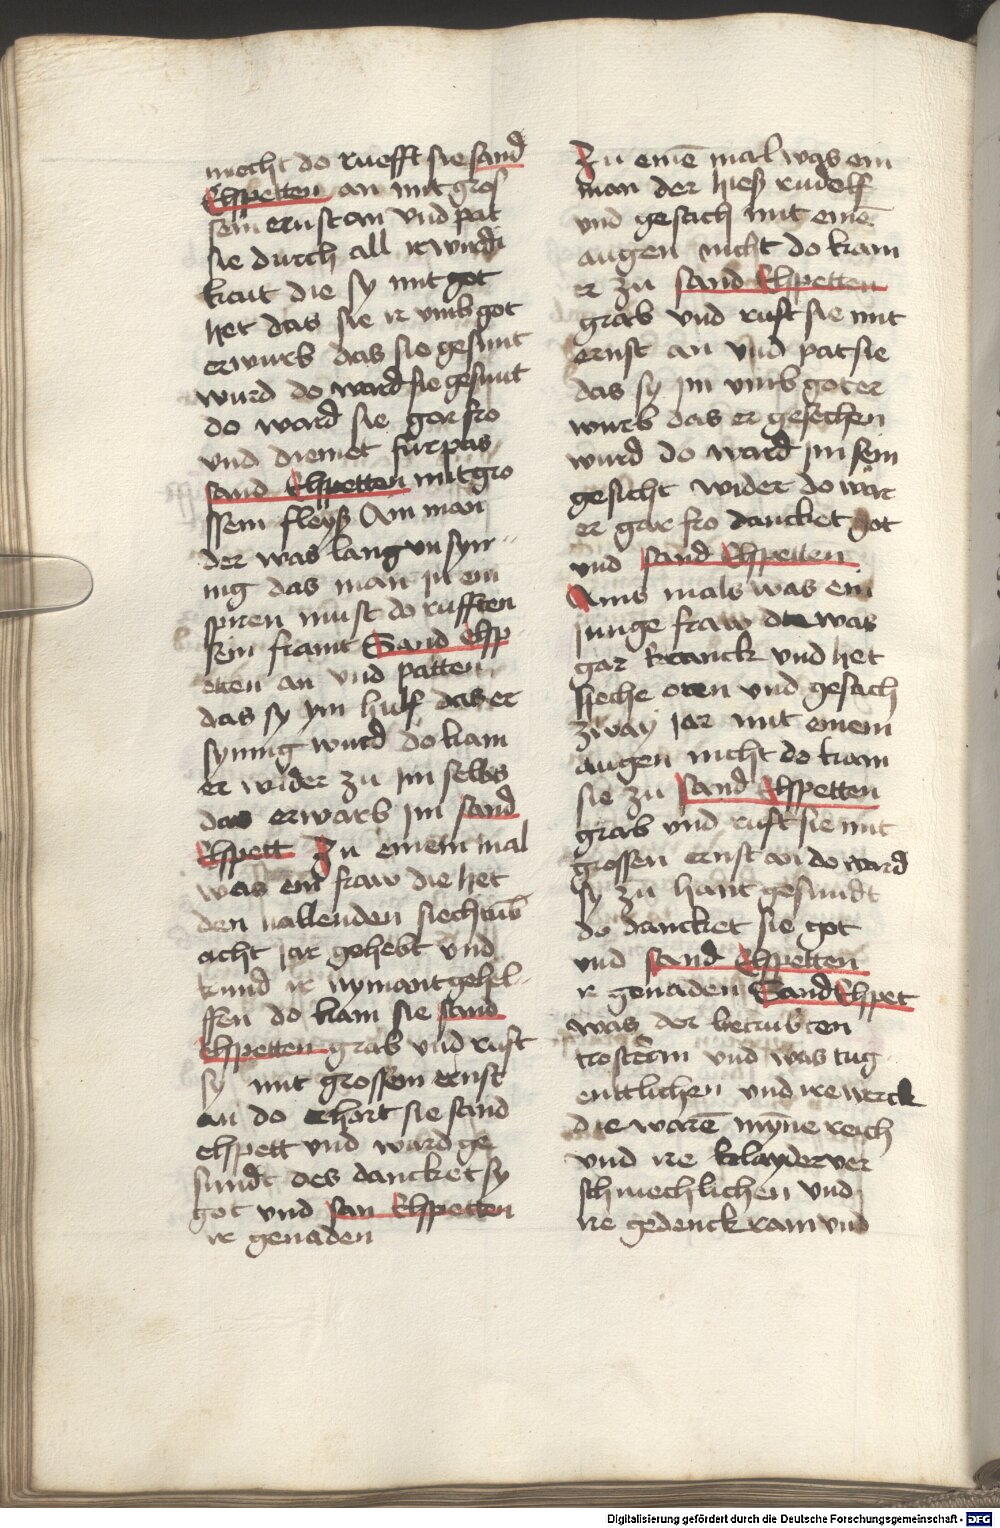 mecht do ruefft sie sand
Elspetten an mit gros
sem ernst an vnd pat
sie durch all ir wirdi
keut die sy mit got
het das sie ir vmb got
erwurb das sie gesunt
wurd do ward sie gesunt
do ward sie gar fro
vnd dienet fürpas
sand Elspetten mit gro
ssem fleyß Am man
der was lang vnsyn
nig das man in ein
spren must do rufften
sein framt Sand Elsp
etten an vnd patten
das sy ym hulf das er
synnig wurd do kam
er wider zu im selbs
das erwarb im sand
Elspett Zu einem mal
was ein fraw die het
den uallenden siechtub
acht jar gehebt vnd
kund ir nymant gehel
ffen do kam sie sand
Elspetten grab vnd rüft
sy mit grossem ernst
an do erhort sie sand
elspett vnd ward ge
sundt des dancket sy
got vnd san Elspetten
ir genaden
Zu eine mal was ein
man der hieß rudolf
vnd gesach mit eine
augen nicht do kam
er zu sand Elspetten
grab vnd ruft sie mit
ernst an vnd pat sie
das sy im vmb got er
wurb das er gesechen
wurd do ward im sein
gesicht wider do war
er gar fro dancket got
vnd sand Elspetten
Ains mals was ein
junge fraw die was
gar kranck vnd het
sieche oren vnd gesach
zway jar mit einem
augen nicht do kam
sie zu sand Elspetten
grab vnd ruft sie mit
grossen ernst an do ward
sy zu hant gesundt
do dancket sie got
vnd sand Elspetten
ir genaden Sand Elspet
was der betrubten
trosterin vnd was tug
enttlichen vnd ire werck
die waren myne reich
vnd ire klayder ver
schmechlichen vnd
ire gedenck ram vnd
Digitalisierung gefördert durch die Deutsche Forschungsgemeinschaft - DFG